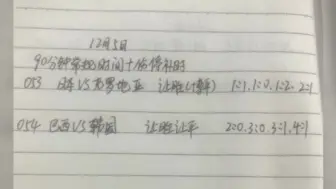 12月5日
90分钟常规时间+伤停补时
053 日本VS克罗地亚 让胜(博平) 1:1,1:0,1:2,2:1
054 巴西VS韩国 让胜让平 2:0,3:0,3:1,4:1